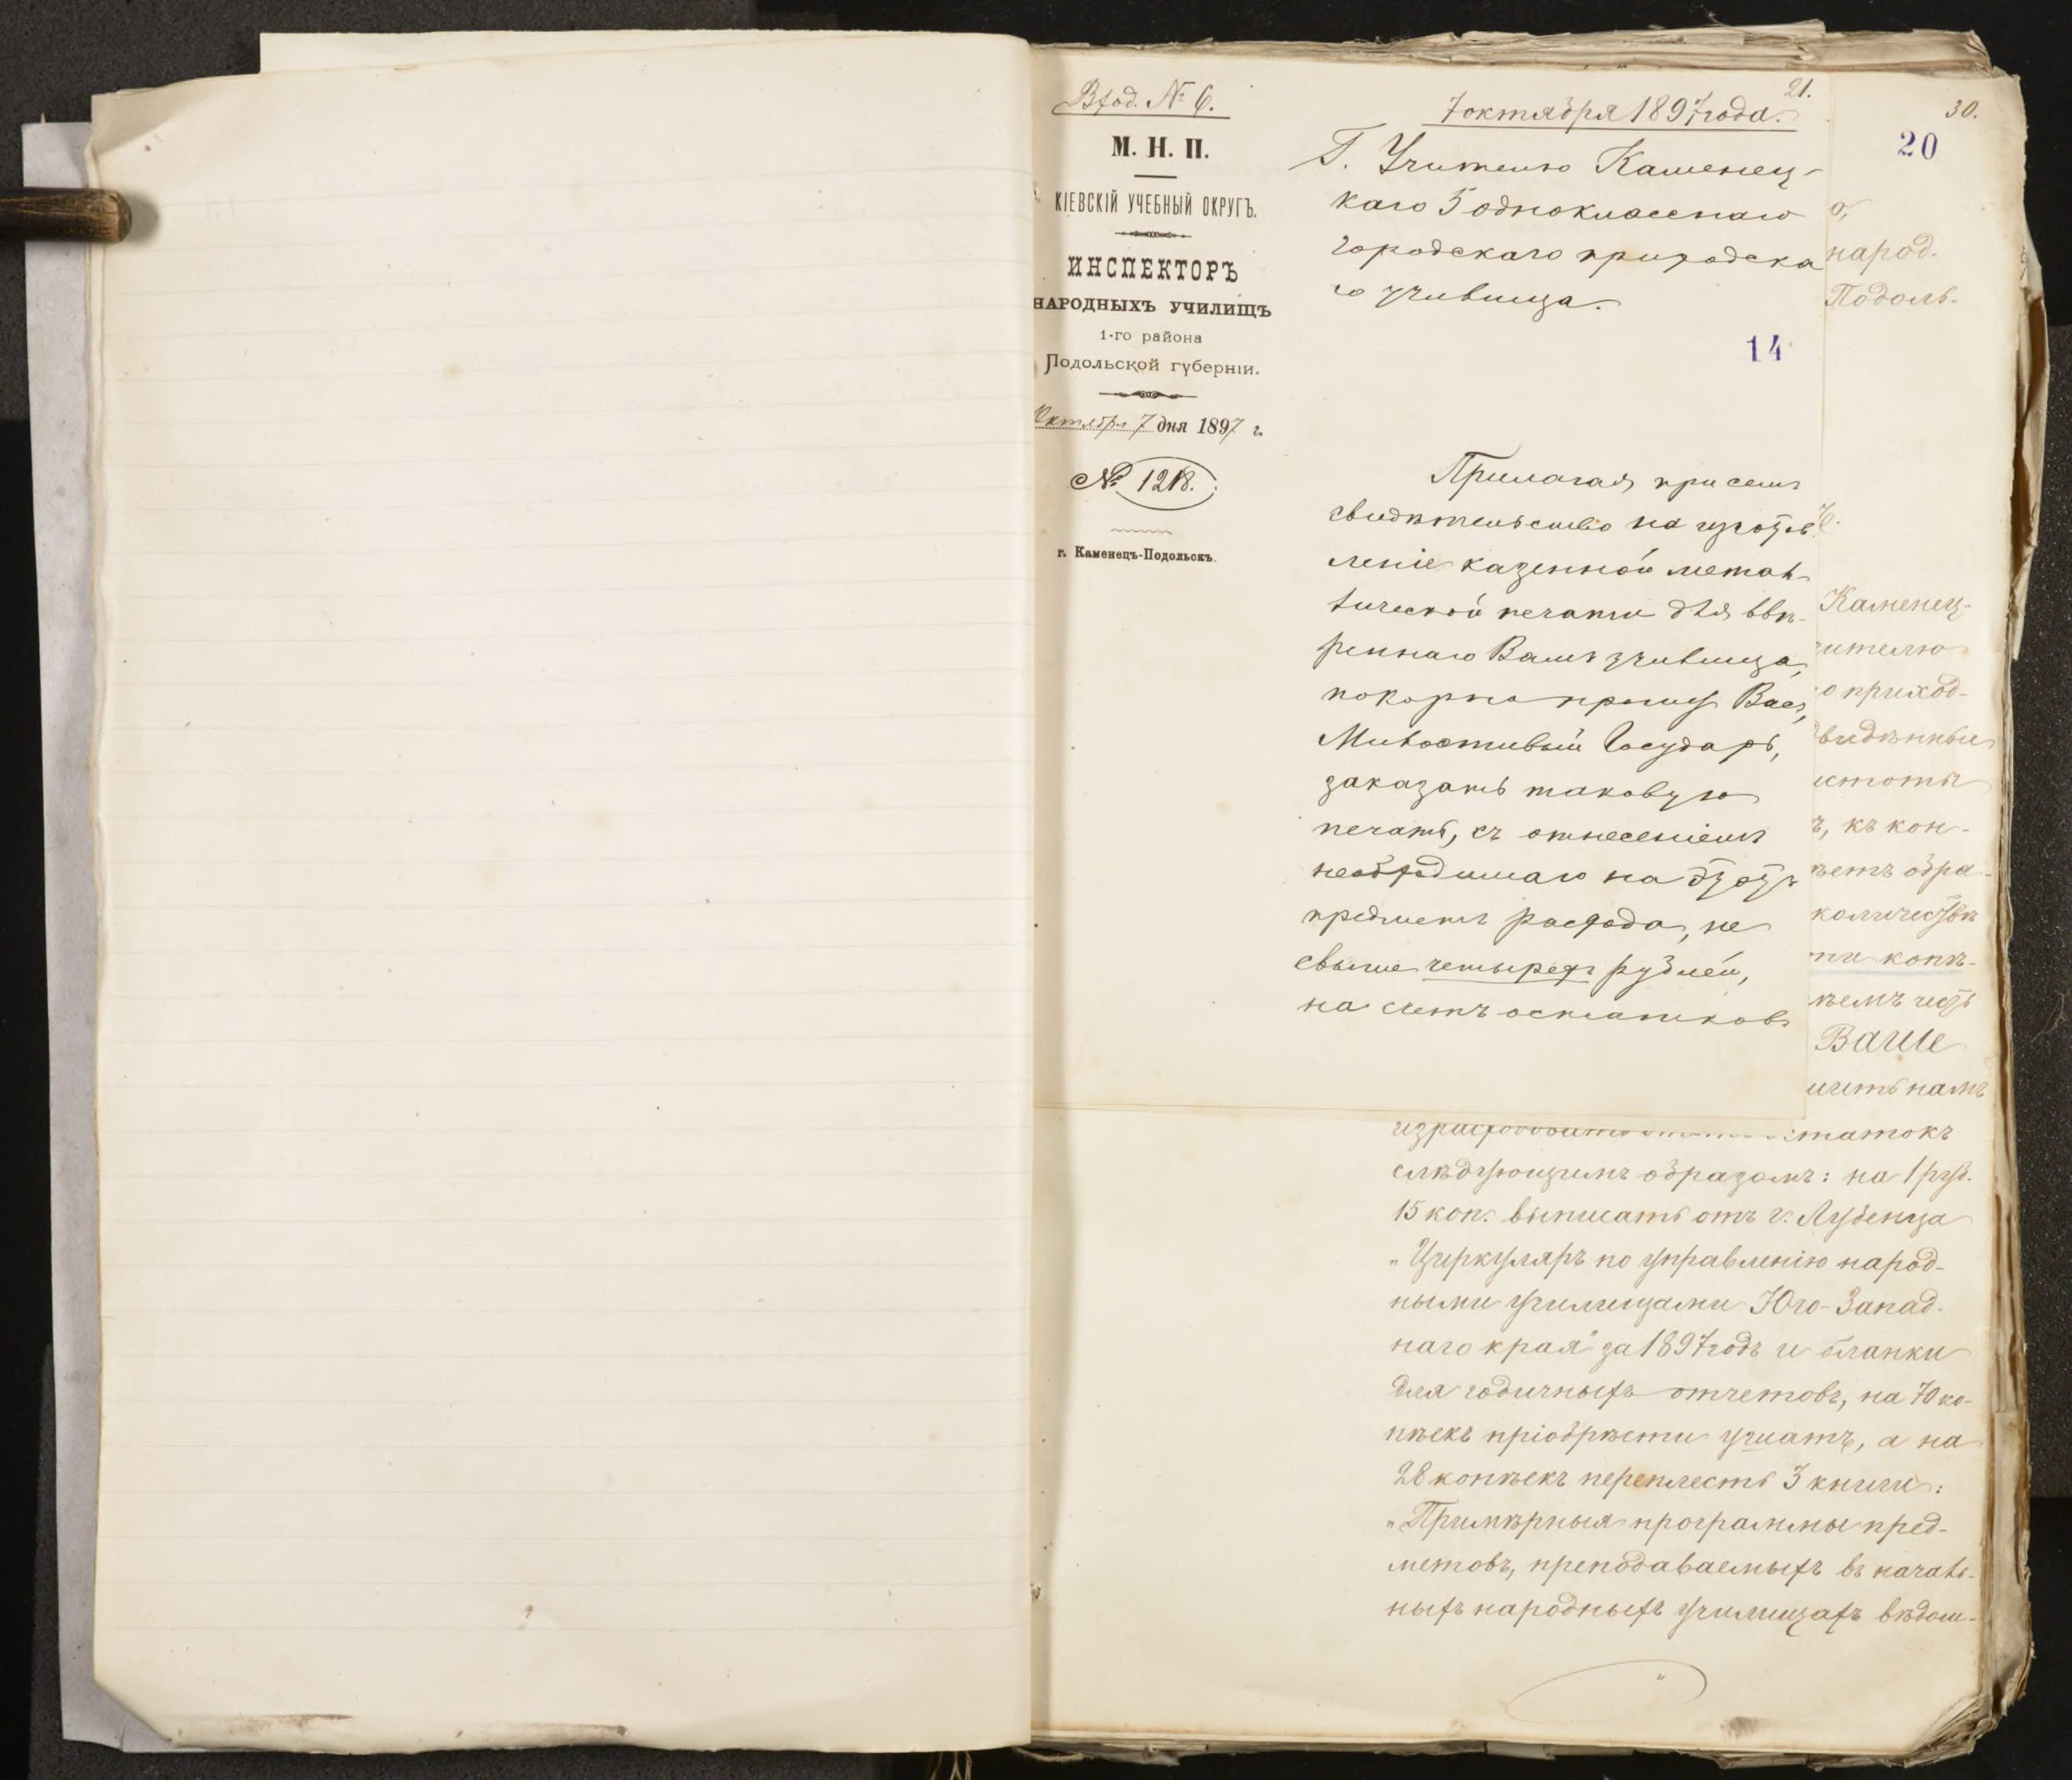 Вход. № 6.
М. Н. П.
КІЕВСКІЙ УЧЕБНЫЙ ОКРУГЪ.
ИНСПЕКТОРЪ
НАРОДНЫХЪ УЧИЛИЩЪ
1-го района
Подольской губерніи.
Октября 7 дня 1897 г.
№ 1218.
г. Каменецъ-Подольскъ.
21.
7 октября 1897 года.
Г. Учителю Каменец-
каго 5 однокласснаго
городскаго приходска
го училища.
14
Прилагая при семъ
свидѣтельство на изготов
леніе казенной метал-
лической печати для ввѣ-
реннаго Вамъ училища,
покорно прошу Васъ,
Милостивый Государь,
заказать таковую
печать, съ отнесеніемъ
необходимаго на этотъ
предметъ расхода, не
свыше четырехъ рублей,
на счетъ остатковъ
30.
20
народ-
Подоль-
Каменец-
ителю
о приход-
видѣнные
, къ кон-
ѣетъ обра-
количествѣ
ти копѣ-
ѣемъ честь
Ваше
намъ
статокъ
слѣдующимъ образомъ: на 1 руб.
15 коп. выписать отъ г. Лубенца
„Циркуляръ по управленію народ-
ными училищами Юго-Запад-
наго края" за 1897 годъ и бланки
для годичныхъ отчетовъ, на 70 ко-
пѣекъ пріобрѣсти ушатъ, а на
28 копѣекъ переплесть 3 книги:
„Примѣрныя программы пред-
метовъ, преподаваемыхъ въ началь-
ныхъ народныхъ училищахъ вѣдом-